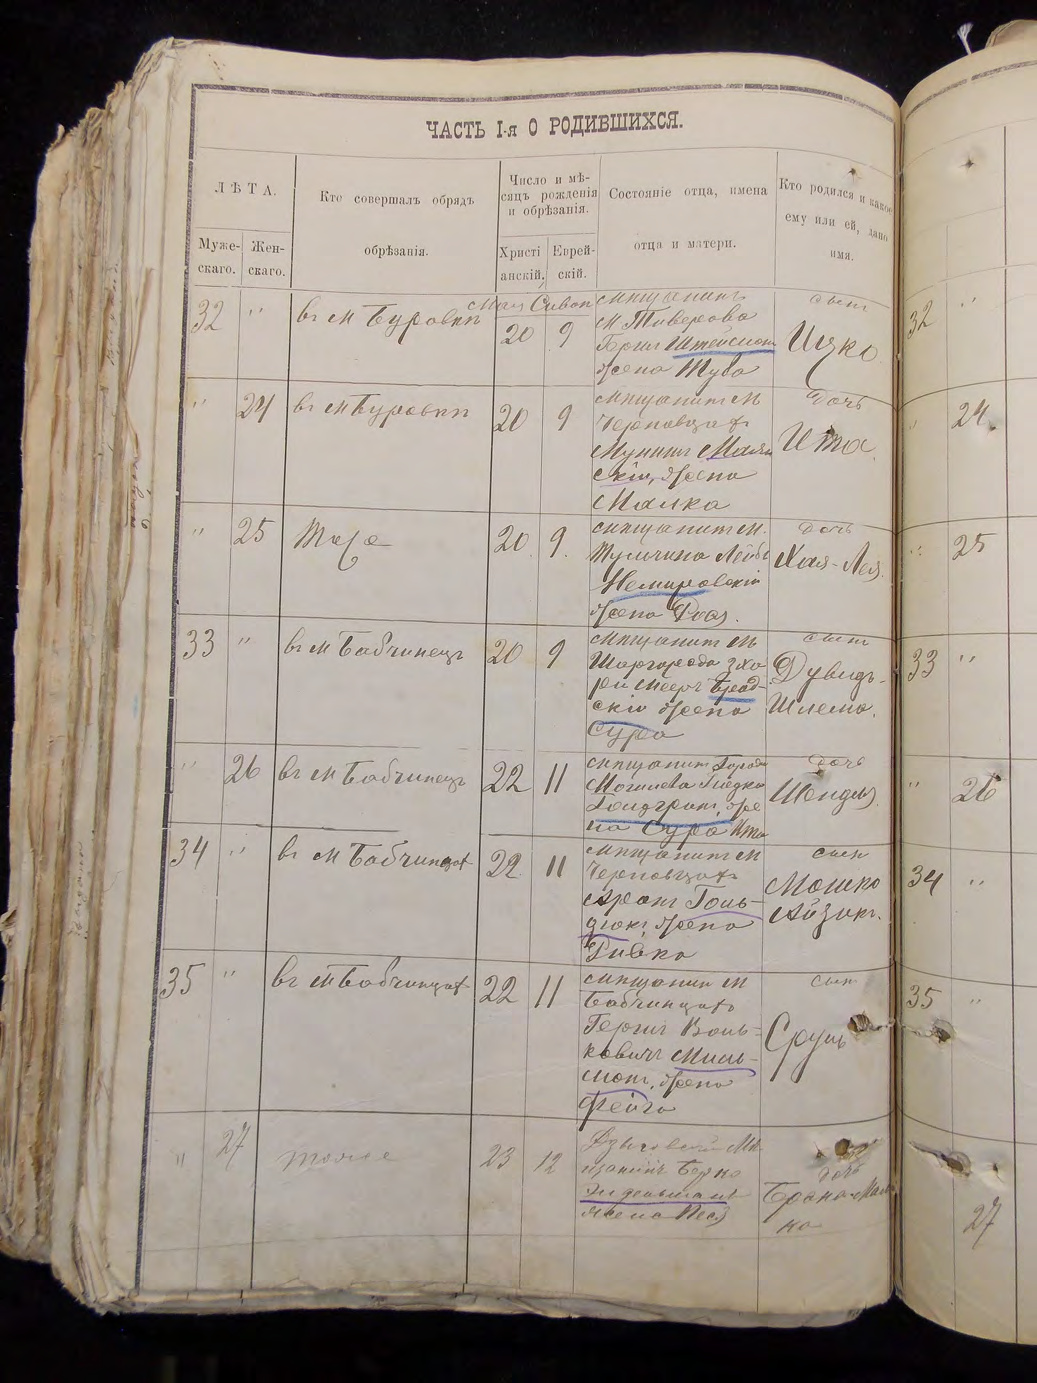 ЧАСТЬ I-я О РОДИВШИХСЯ.
Л Ѣ Т А.
Муже-
скаго.
Жен-
скаго.
Кто совершалъ обрядъ
обрѣзанія.
Число и мѣ-
сяцъ рожденія
и обрѣзанія.
Христі
анскій,
Еврей-
скій.
Состояніе отца, имена
отца и матери.
Кто родился и какое
ему или ей, дано
имя.
32 " въ м Буровкѣ
Мая Сиван
20 9
мѣщанинъ
м. Тиверова
Гершъ Штейнман
жена Туба
сынъ
Ицко
" 24 въ м Буровкѣ 20 9
мѣщанинъ м
Черновцахъ
жена
Малка
Дочь
Ита.
" 25 20. 9.
мѣщанинъ м.
Тульчина Лейб
Немировскій
жена Роя.
дочь
Хая-Лея.
33 " въ м Бабчинецъ 20 9
мѣщанинъ м
Шаргорода Зха-
рій Мееръ Брод-
скій жена
Сура
сынъ
Дувидъ-
Шлема.
" 26 въ м Бабчинецъ 22 11
мѣщанинъ города
Могилева
же
на Сура Ита
дочь
Шендля
34 " въ м Бабчинцах 22 11
мѣщанинъ м
Черновцахъ
Аронъ Голь-
жена
Ривка
сынъ
Мошко
Айзикъ.
35 " въ м Бабчинцах 22 11
мѣщанин м
Бабчинцахъ
Гершъ Воль-
ковичъ Миль-
манъ, жена
Фейга
сынъ
Сруль
" 27 тоже 23 12
Мѣ
щанинъ Берко
жена Песя
дочь
Брана-Мал
ка
32 "
" 24.
" 25
33 "
" 26
34 "
35 "
27